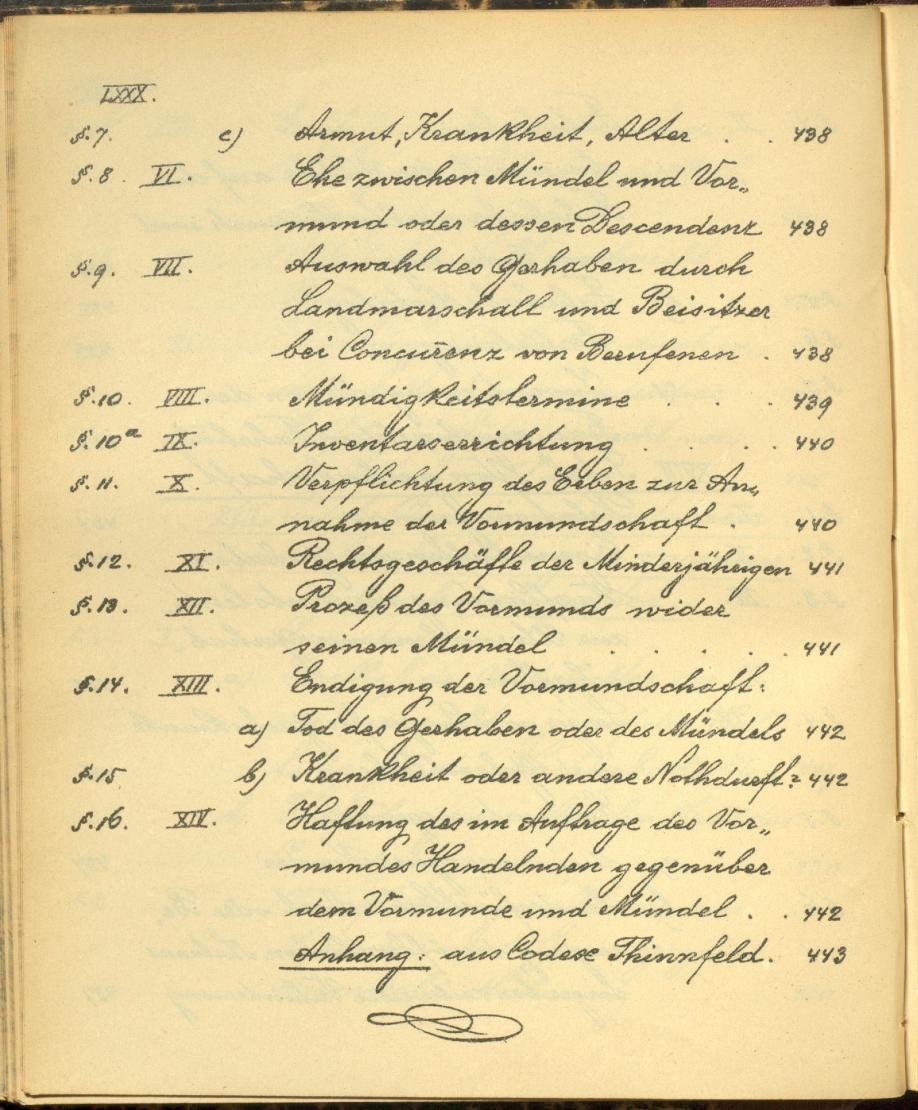 LXXX.
§.7. c) Armut, Krankheit, Alter . . 438
§.8. VI. Ehe zwischen Mündel und Vor„
mund oder dessen Descendenz 438
§.9. VII. Auswahl des Gerhaben durch
Landmarschall und Beisitzer
bei Concur̄enz von Berufenen . 438
§.10. VIII. Mündigkeitstermine . . . 439
§.10a IX. Inventarserrichtung . . . . 440
§.11. X. Verpflichtung des Erben zur An„
nahme der Vormundschaft . 440
§.12. XI. Rechtsgeschäfte der Minderjährigen 441
§.13. XII. Prozeß des Vormunds wider
seinen Mündel . . . . . 441
§.14. XIII. Endigung der Vormundschaft:
a) Tod des Gerhaben oder des Mündels 442
§.15 b) Krankheit oder andere Nothdurft: 442
§.16. XIV. Haftung des im Auftrage des Vor„
mundes Handelnden gegenüber
dem Vormunde und Mündel . . 442
Anhang: aus Codex Thinnfeld. 443